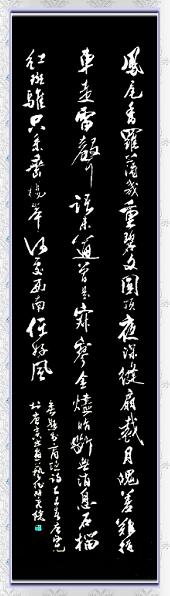 鳳尾香羅薄幾重碧文圓頂夜深縫扇裁月魄羞難掩
車走雷聲語未通曾是寂寥金燼暗斷無消息石榴
紅斑騅只系垂楊岸何處西南任好風